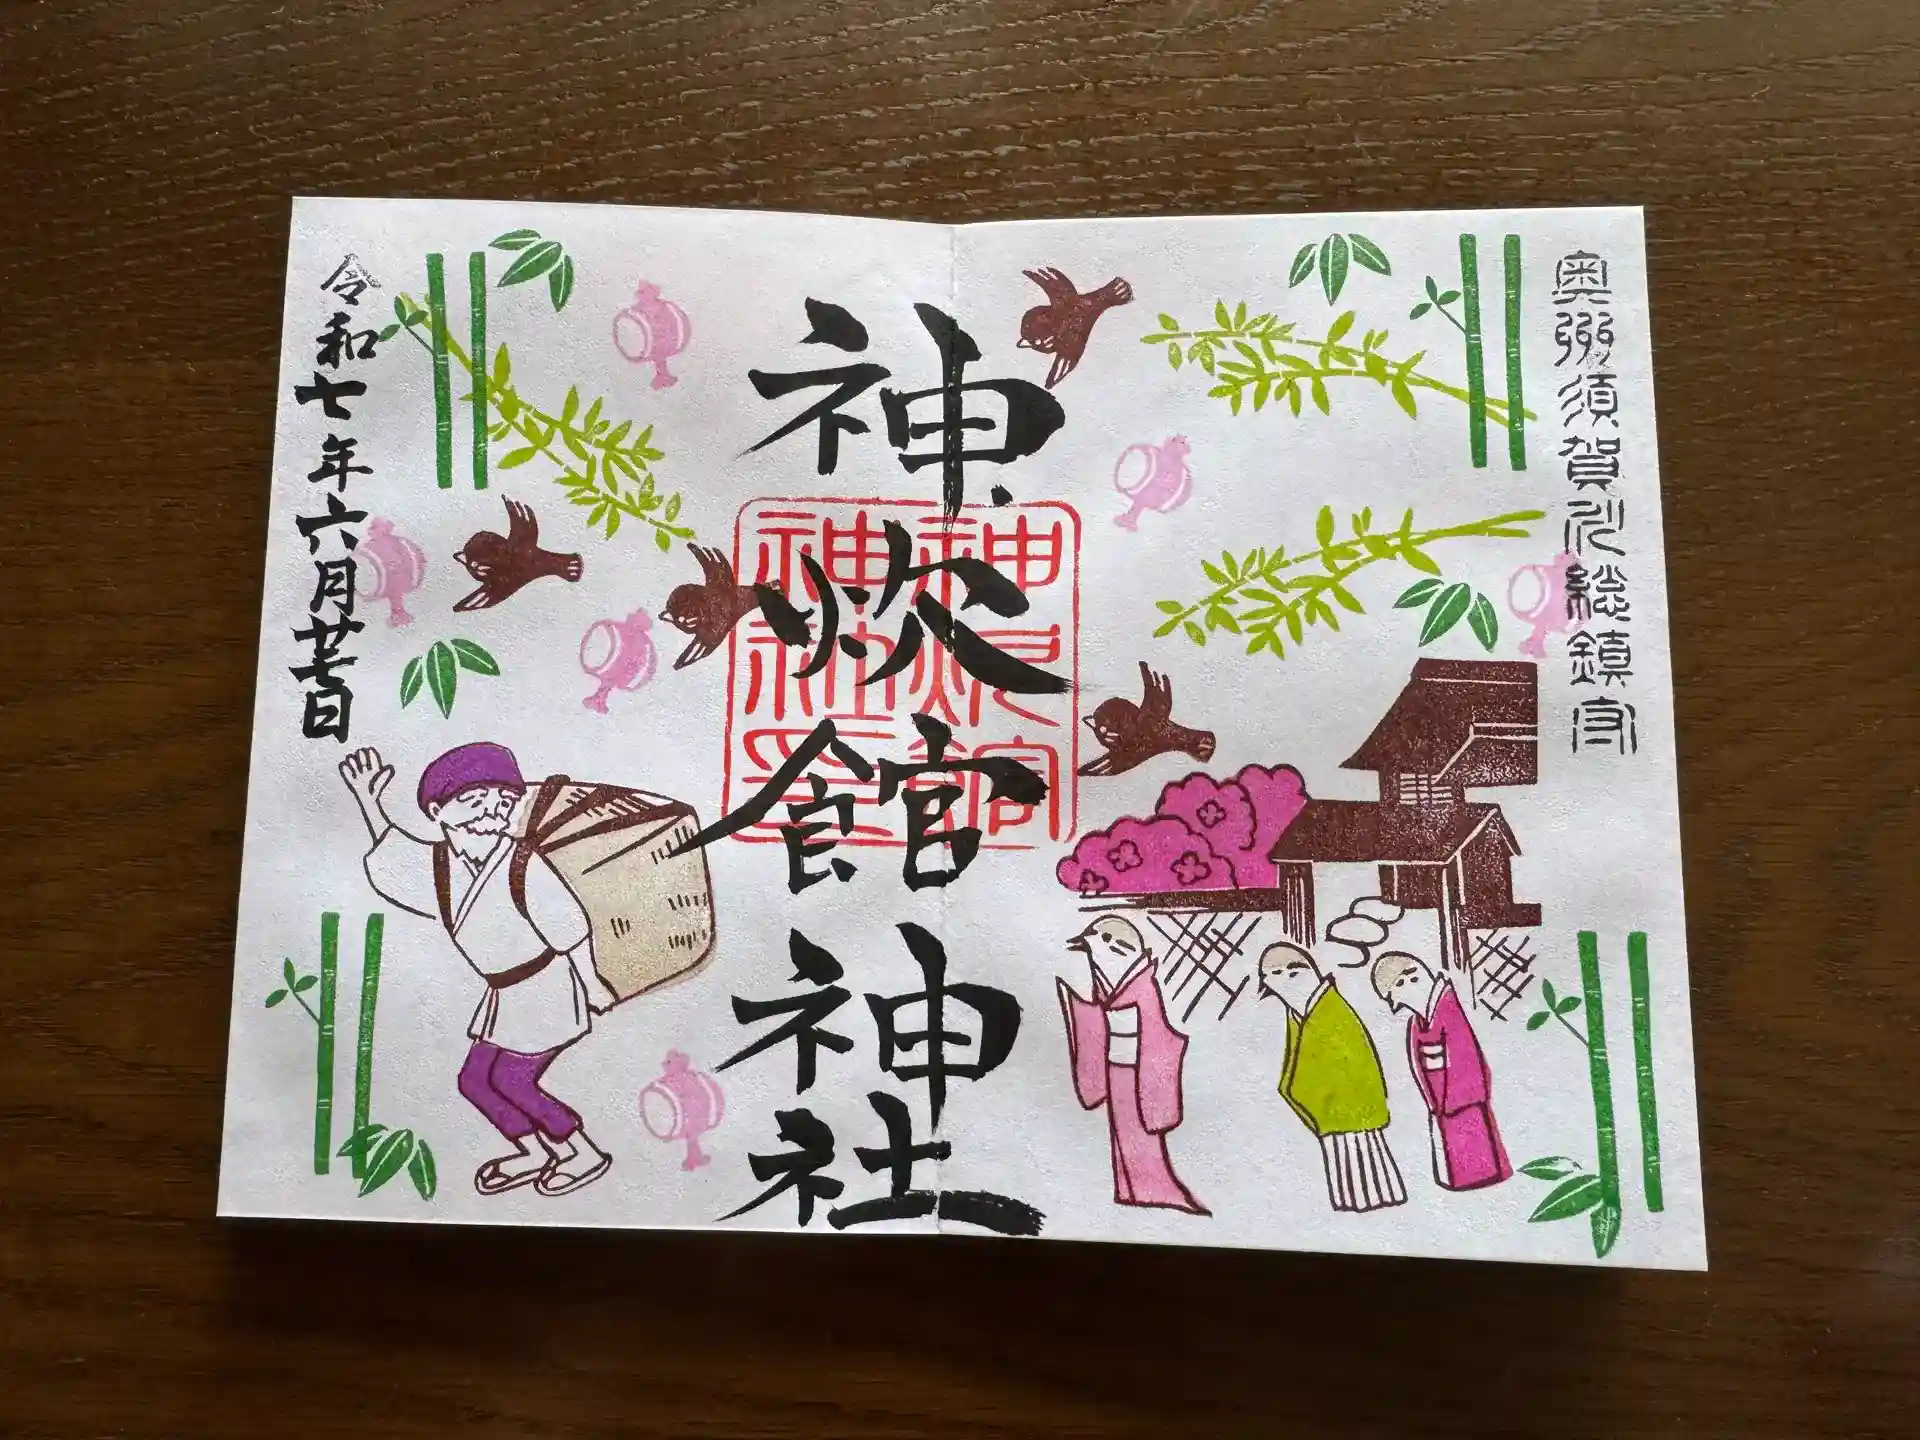 奥州須賀川総鎮守
神炊館神社
神炊館
神社印
令和七年六月廿七日